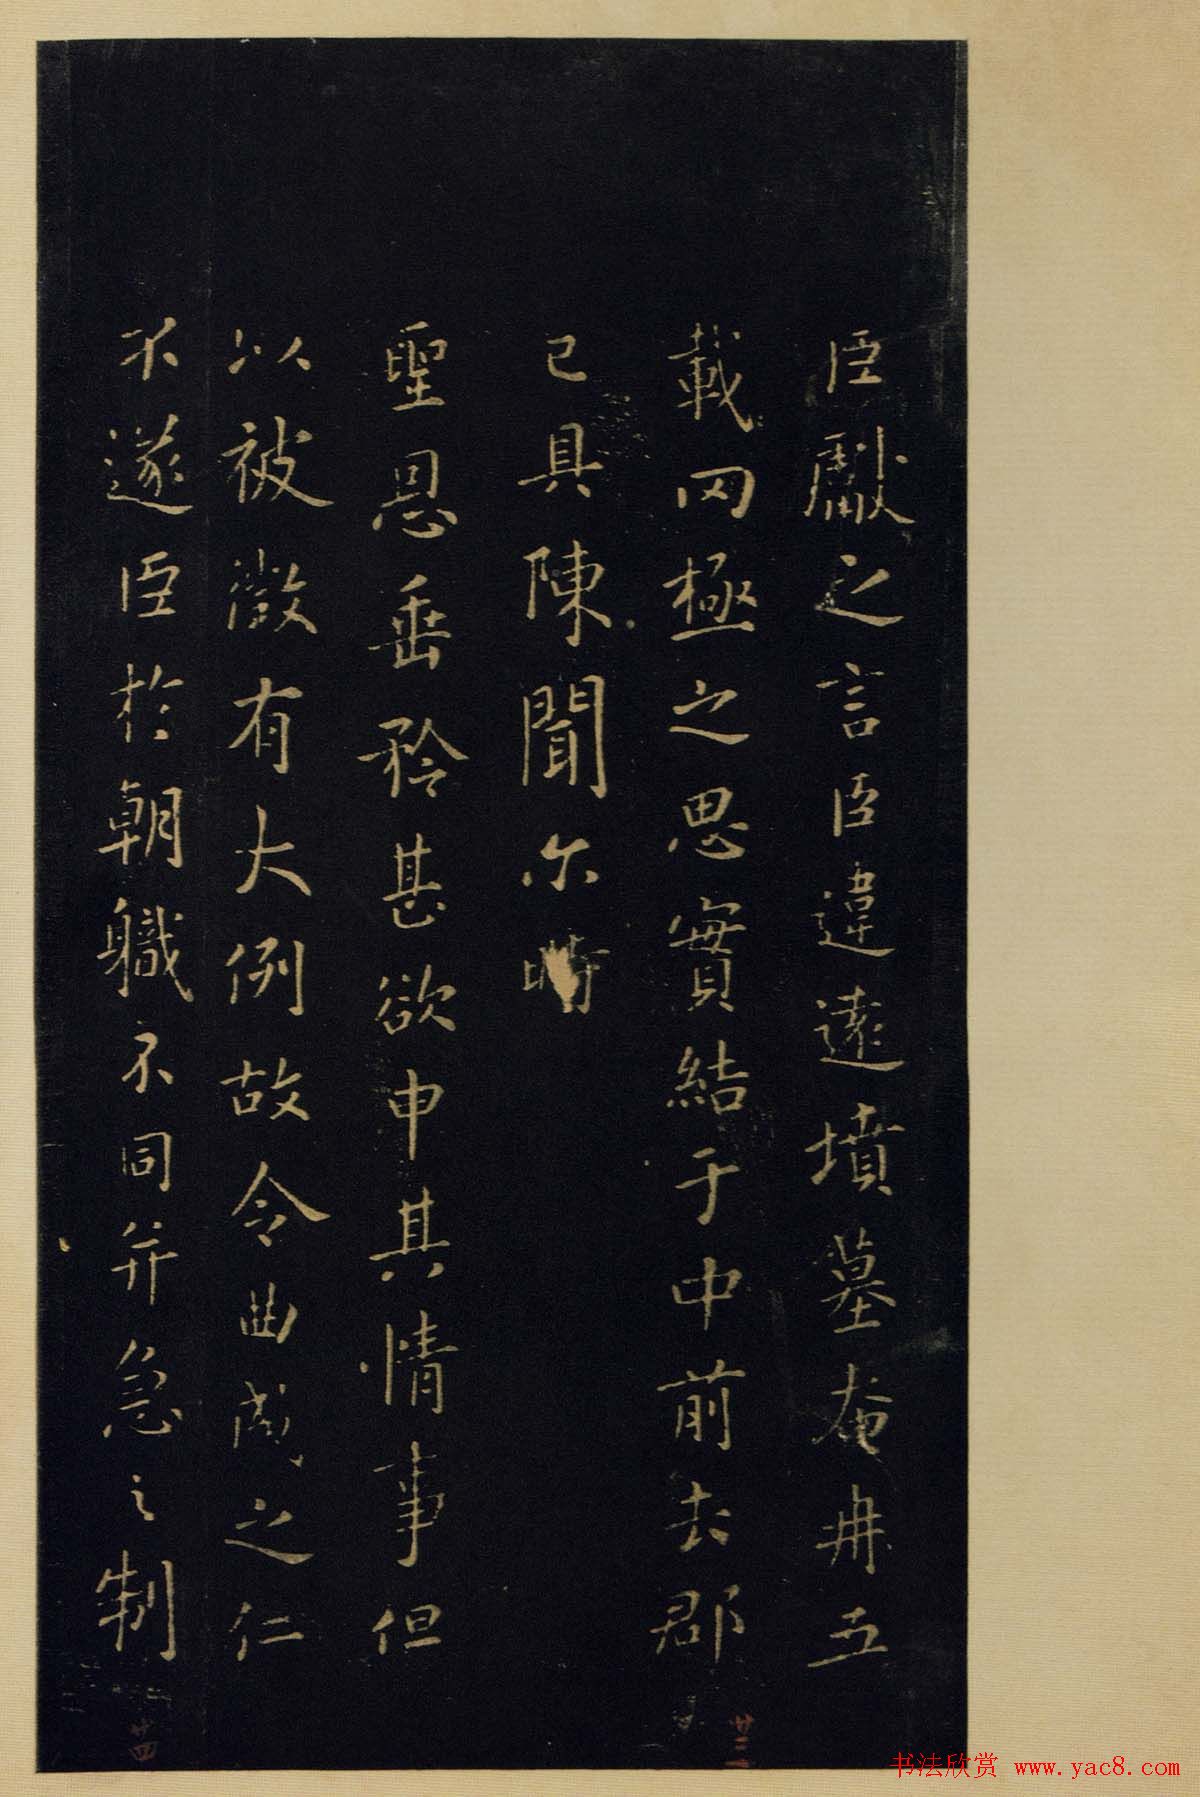 臣獻之言臣違遠墳墓奄冉五
載罔極之思實結于中前去郡
已具陳聞尔時
聖恩垂矜甚欲申其情事但
以被徵有大例故令曲成之仁
不遂臣於朝職不同并急之制
廿三
廿四
书法欣赏 www.yac8.com